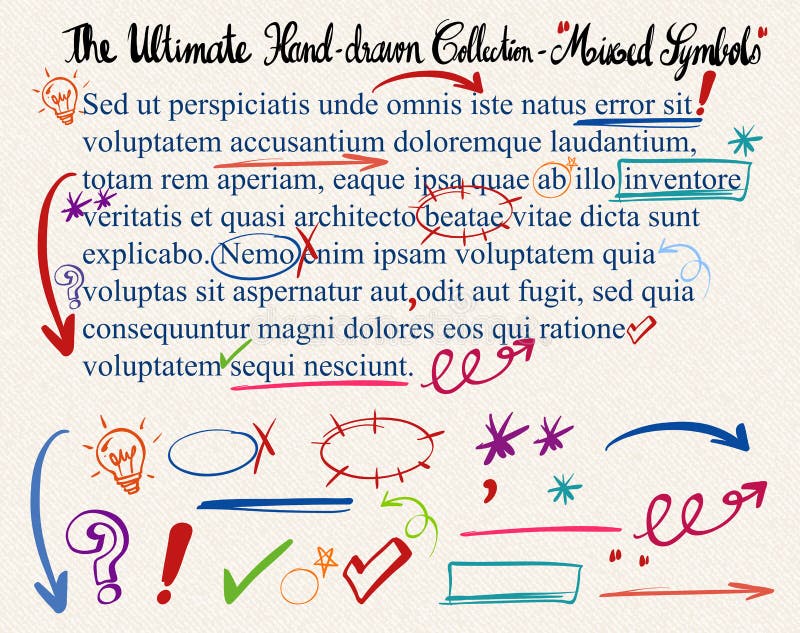 The Ultimate Hand-drawn Collection - "Mixed Symbols"
Sed ut perspiciatis unde omnis iste natus error sit!
voluptatem accusantium doloremque laudantium,
totam rem aperiam, eaque ipsa quae ab illo inventore
veritatis et quasi architecto beatae vitae dicta sunt
explicabo. Nemo enim ipsam voluptatem quia
voluptas sit aspernatur aut, odit aut fugit, sed quia
consequuntur magni dolores eos qui ratione
voluptatem sequi nesciunt.